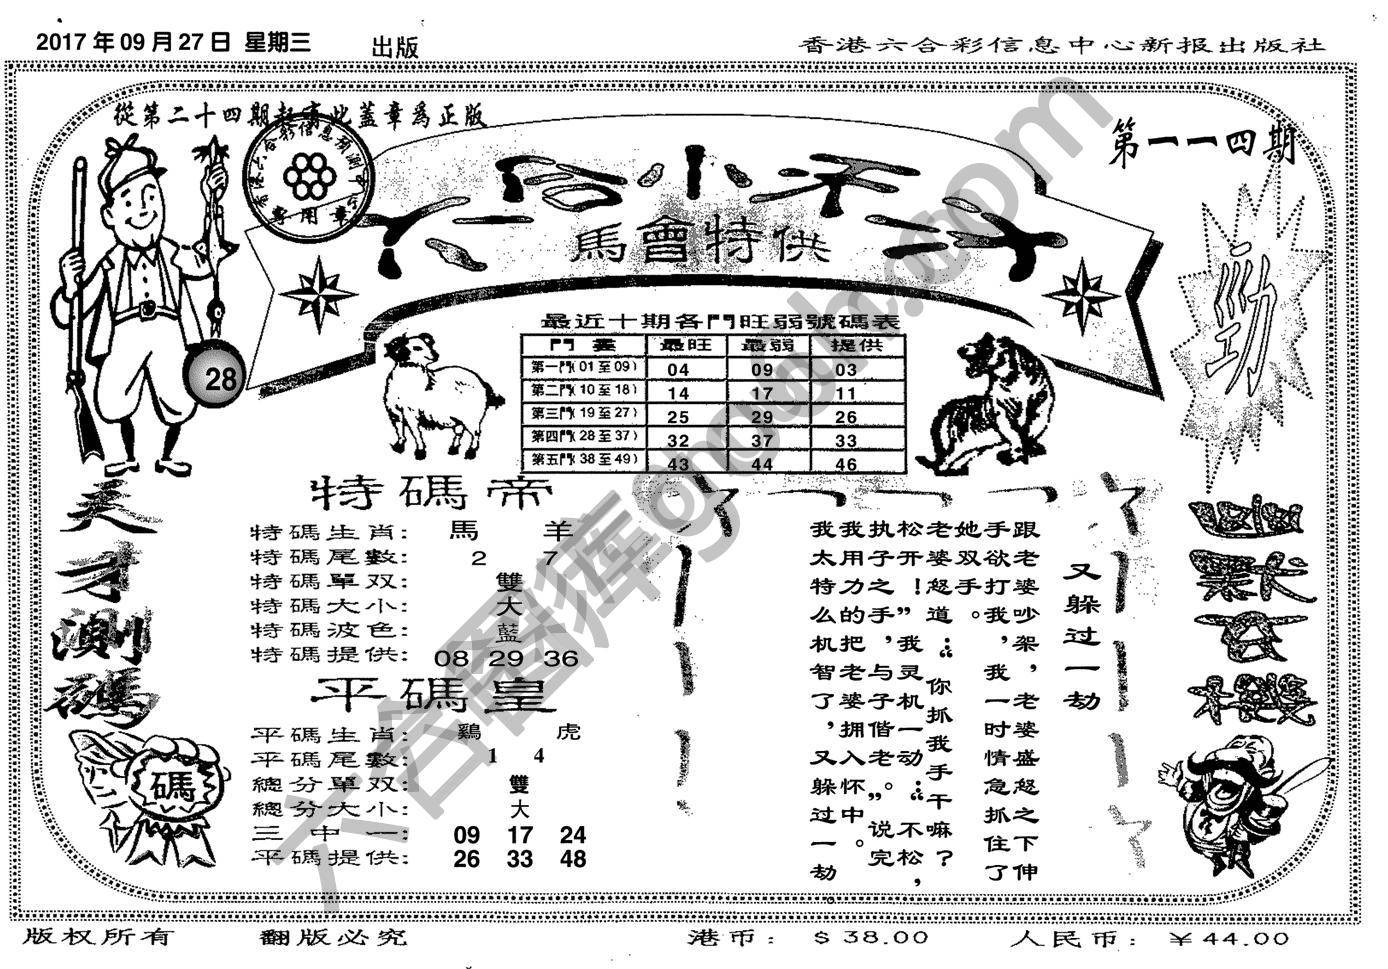 2017年09月27日 星期三 出版
香港六合彩信息中心新报出版社
從第二十四期起有此蓋章爲正版
香港六合彩信息預測中心
專用章
第一一四期
馬會特供
勁
28
最近十期各門旺弱號碼表
門 最旺 最弱 提供
第一門(01至09) 04 09 03
第二門(10至18) 14 17 11
第三門(19至27) 25 29 26
第四門(28至37) 32 37 33
第五門(38至49) 43 44 46
天才測碼
碼
特碼帝
特碼生肖: 馬 羊
特碼尾數: 2 7
特碼單双: 雙
特碼大小: 大
特碼波色: 藍
特碼提供: 08 29 36
平碼皇
平碼生肖: 鷄 虎
平碼尾數: 1 4
總分單双: 雙
總分大小: 大
三中一: 09 17 24
平碼提供: 26 33 48
又躲过一劫
跟老婆吵架,老婆盛怒之下伸
手欲打我,我一时情急抓住了
她双手。
老婆怒道:“你抓我手干嘛?
松开!”我灵机一动:“不松,
执子之手,与子偕老。”说完
我用力的把老婆拥入怀中。
我太特么机智了,又躲过一劫
。
六合图库ghgdh.com
版权所有 翻版必究 港币: $38.00 人民币: ¥44.00